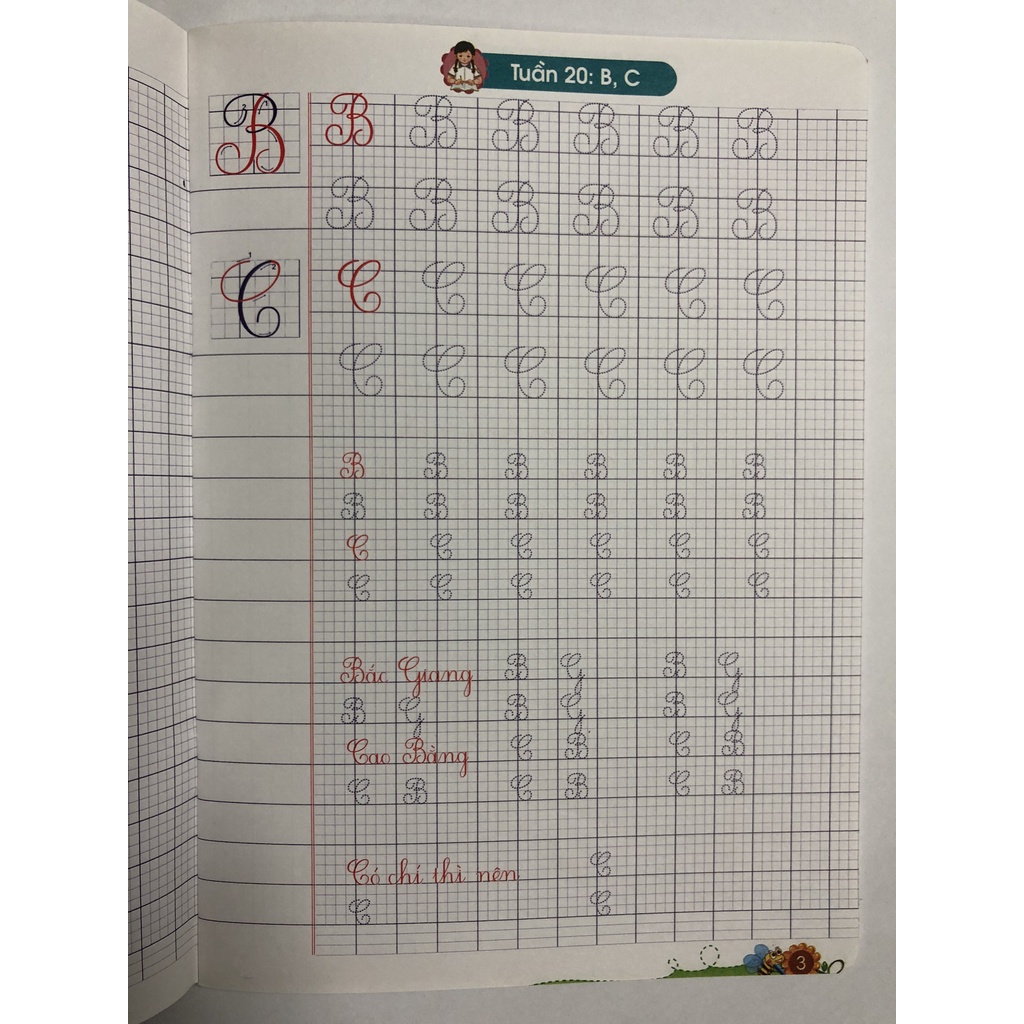 Tuần 20: B, C
B B B B B B B
B B B B B B
C C C C C C C
C C C C C C
B B B B B B
B B B B B B
C C C C C C
C C C C C C
Bắc Giang B G B G
B G B G B G
Cao Bằng C B C B
C B C B C B
Có chí thì nên C
C C
3